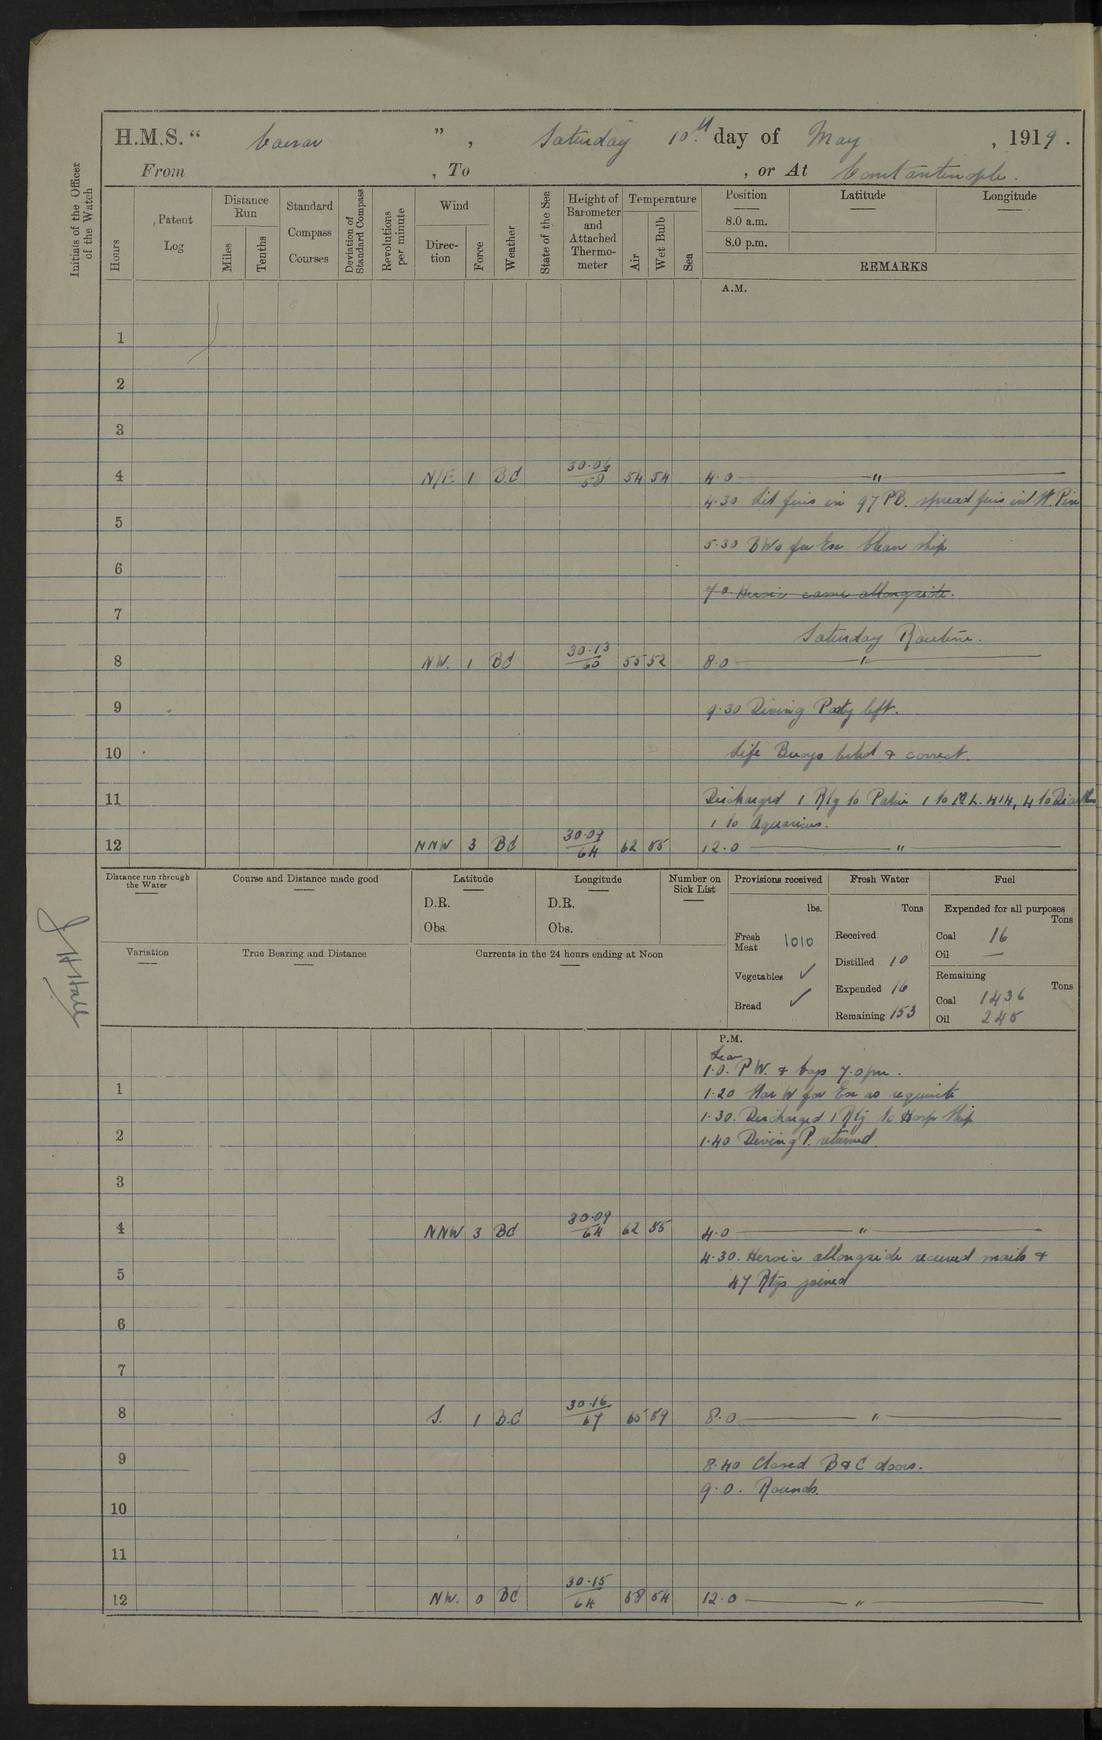 H.M.S. “ Caesar ” , Saturday 10th day of May , 1919 .
From , To , or At Constantinople.
Initials of the Officer of the Watch
Hours
Patent Log
Distance Run
Miles
Tenths
Standard Compass Courses
Deviation of Standard Compass
Revolutions per minute
Wind
Direction
Force
Weather
State of the Sea
Height of Barometer and Attached Thermometer
Temperature
Air
Wet Bulb
Sea
Position Latitude Longitude
8.0 a.m.
8.0 p.m.
REMARKS
A.M.
1
2
3
4 N/E 1 B.C 30.06/58 54 54 4.0 — " —
4.30 Lit fires in 97 PB. spread fires in W. Pin
5
5.30 BWs for Ex Clean ship
6
7.0. Heroic came allongside.
7
Saturday Routine.
8 NW. 1 BC 30.13/60 55 52 8.0 — " —
9 9.30 Diving Party left.
10 Life Buoys tested & correct.
11 Discharged 1 Rtg to Patia 1 to M.L. 414, 4 to
1 to Aquarius.
12 NNW 3 BC 30.09/64 62 55 12.0 — " —
Distance run through the Water
Course and Distance made good
Latitude
D.R.
Obs.
Longitude
D.R.
Obs.
Number on Sick List
Provisions received
lbs.
Fresh Meat 1010
Vegetables ✓
Bread ✓
Fresh Water
Tons
Received
Distilled 10
Expended 16
Remaining 153
Fuel
Expended for all purposes
Tons
Coal 16
Oil —
Remaining
Tons
Coal 1436
Oil 245
Variation
True Bearing and Distance
Currents in the 24 hours ending at Noon
J H Hall
P.M.
1.0. PW. & boys 7.0 pm.
1 1.20 Star W for Ex as requisite
1.30. Discharged 1 Rtg to Hosp Ship
2 1.40 Diving P. returned
3
4 NNW 3 BC 30.09/64 62 55 4.0 — " —
4.30. Heroic allongside received mails &
5 47 Rtgs joined
6
7
8 S. 1 B.C 30.16/67 65 59 8.0 — " —
9 8.40 Closed B & C doors.
9.0. Rounds
10
11
12 NW. 0 BC 30.15/64 58 54 12.0 — " —